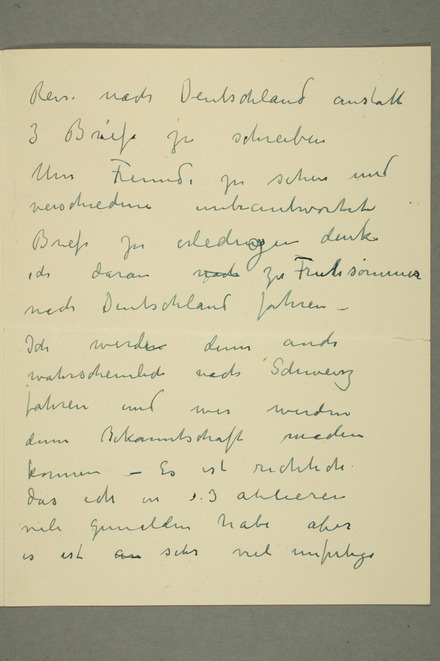 Reis. nach Deutschland anstatt
3 Briefe zu schreiben
Um Freunde zu sehen und
verschiedene unbeantwortete
Briefe zu erledigen denke
ich daran nach zu Frühsommer
nach Deutschland fahren –
Ich werde dann auch
wahrscheinlich nach Schweiz
fahren und wir werden
dann Bekanntschaft machen
können – Es ist richtich
das ich in 3 atelieren
viele gemälden habe aber
es ist an sehr viel unfertige